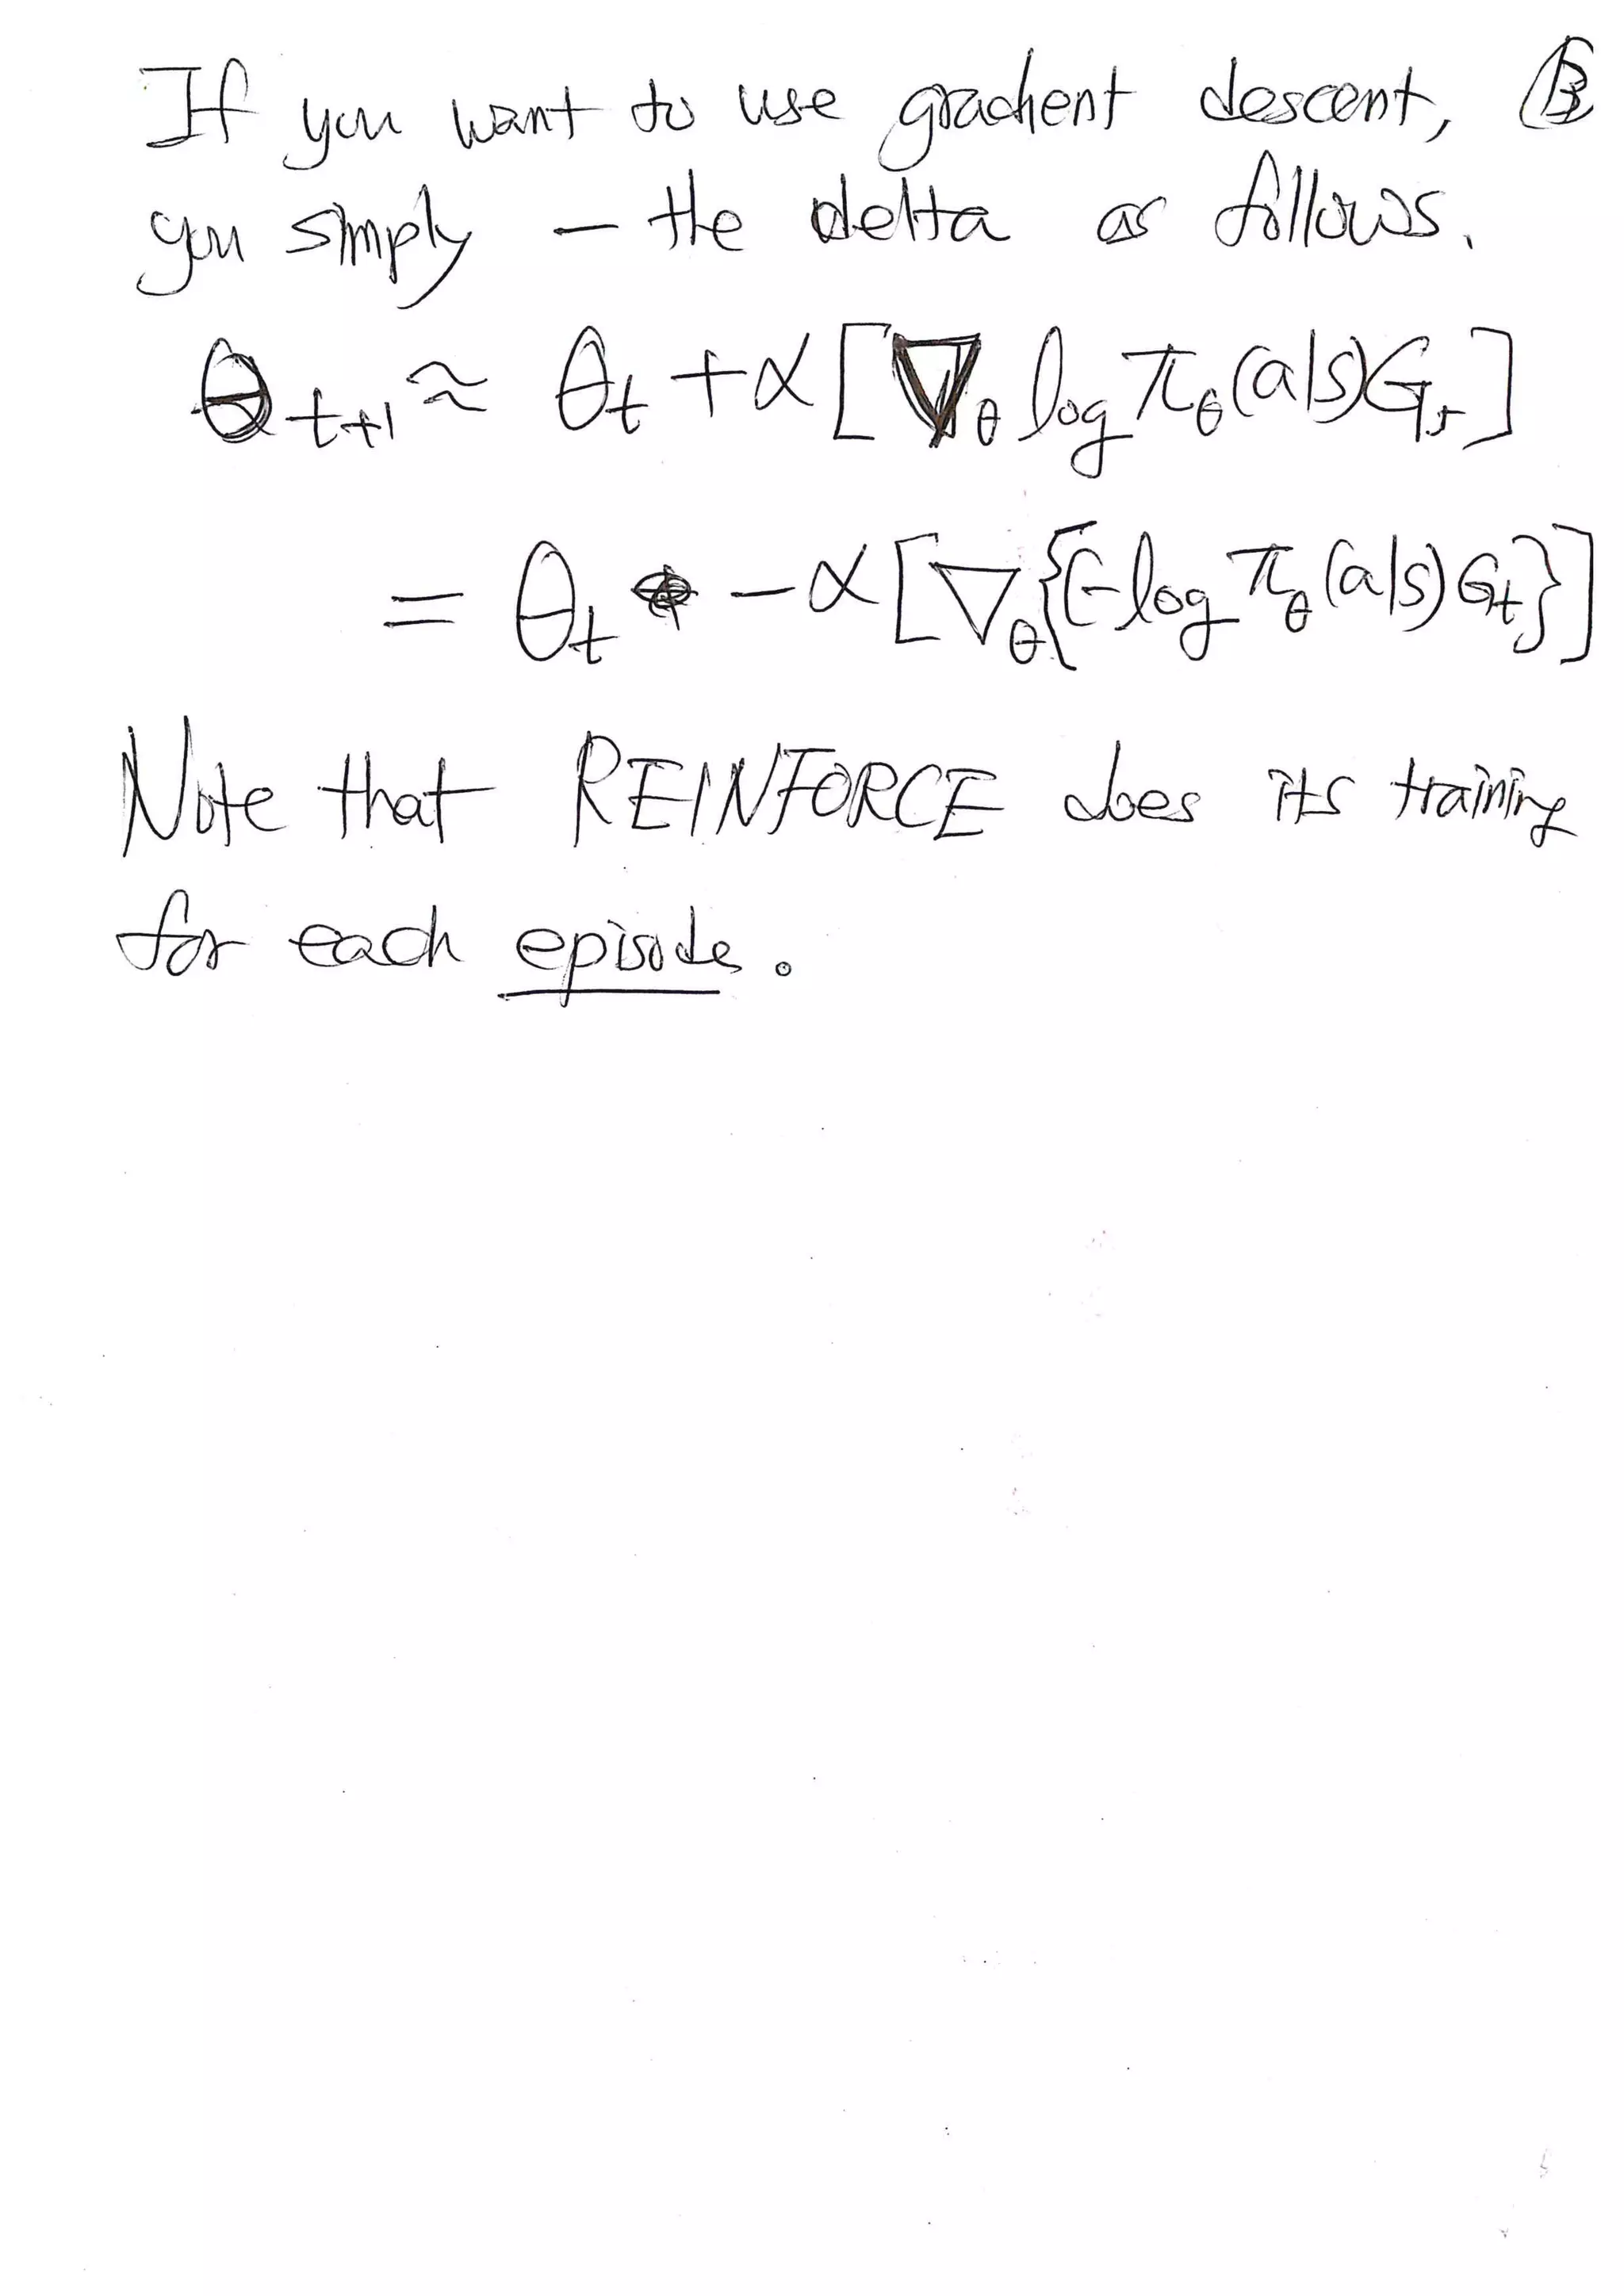 If you want to use gradient descent, B
you simply - the delta as follows.
θt+1 ≈ θt + α [∇θ log πθ(a|s)Gt]
= θt - α [∇θ{-log πθ(a|s)Gt}]
Note that REINFORCE does its training
for each episode.